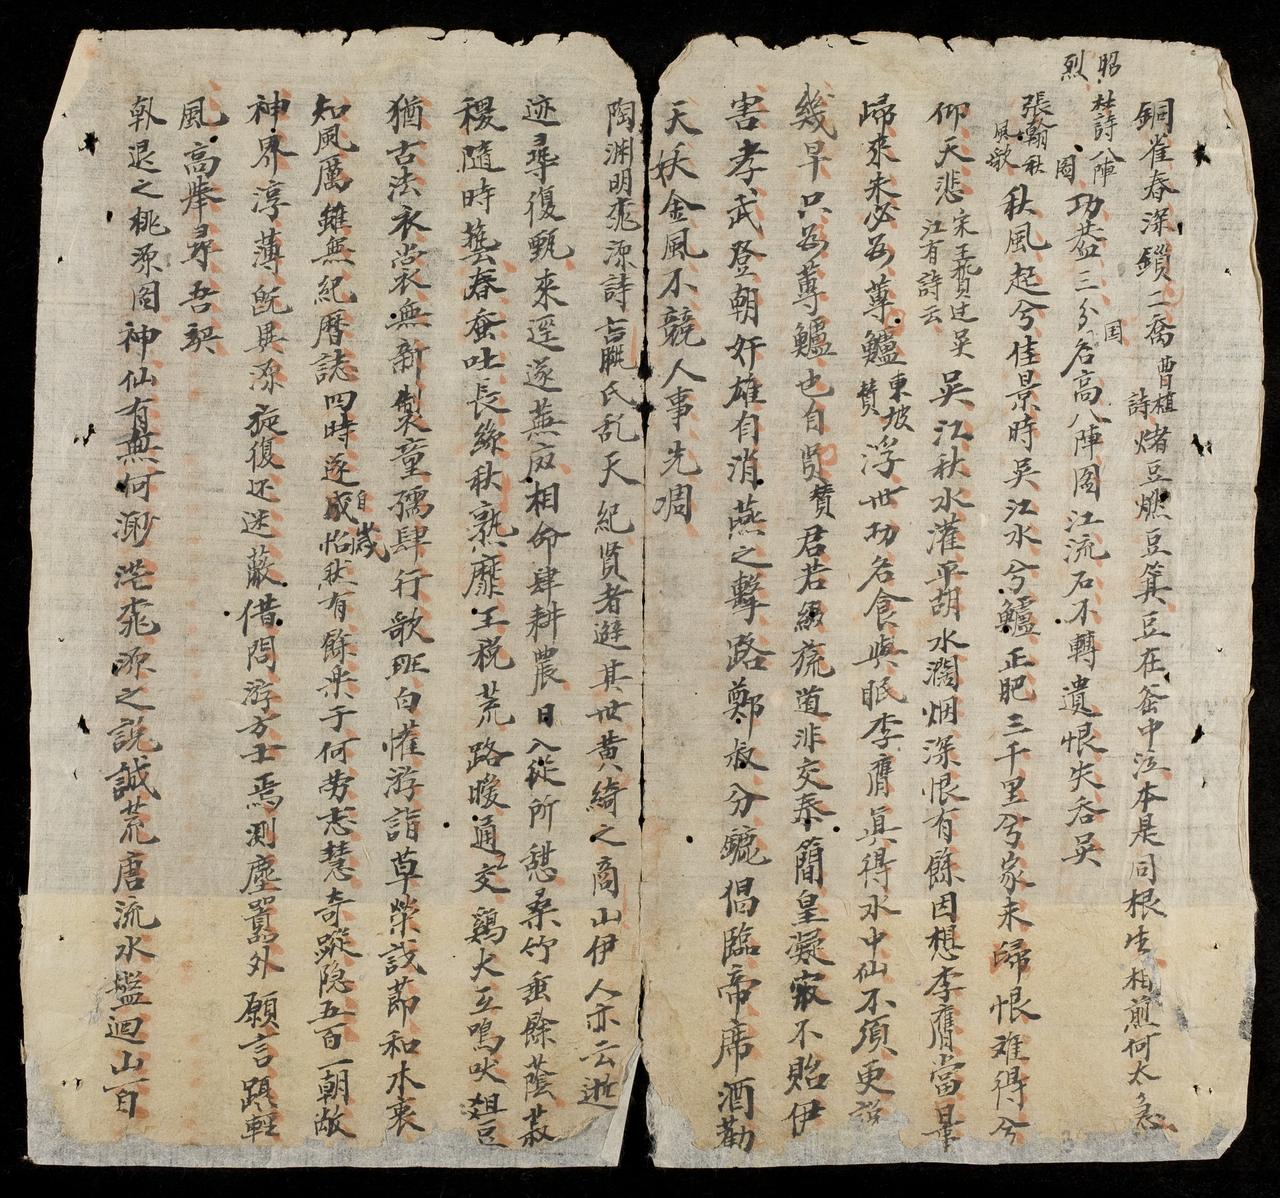 銅雀春深鎖二喬曹植詩煮豆燃豆萁豆在釜中泣本是同根生相煎何太急
昭烈
杜詩八陣圖功盖三分国名高八陣圖江流石不轉遺恨失吞吴
張翰秋風歌秋風起兮佳景時吴江水兮鱸正肥三千里兮家未歸恨难得兮
仰天悲宋王贄过吴江有詩云吴江秋水灌平湖水濶烟深恨有餘因想李鷹當日事
歸來未必為蓴鱸東坡賛浮世功名食與眠李鷹真得水中仙不須更說
幾早只為蓴鱸也自賢賛君若綴旒道非交泰簡皇凝寂不貽伊
害孝武登朝奸雄自消燕之擊路鄭叔分鑣倡臨帝席酒勸
天妖金風不競人事先凋
陶渊明桃源詩嬴氏乱天紀賢者避其世黄綺之商山伊人亦云逝
迹尋復甄來逕遂蕪廢相命肆耕農日入從所憇桑竹垂餘蔭菽
稷隨時藝春蚕吐長絲秋熟靡王税荒路曖通交鷄犬互鳴吠俎豆
猶古法衣裳無新製童孺肆行歌班白懽游詣草榮識莭和木衰
知風厲雖無紀暦誌四時自成歲怡然有餘楽于何劳志慧奇蹤隐五百一朝敞
神界淳薄既異源旋復还迷蔽借問游方士焉測塵嚣外願言躡輕
風高举尋吾契
軋退之桃源圖神仙有無何渺茫桃源之説誠荒唐流水盤迴山百